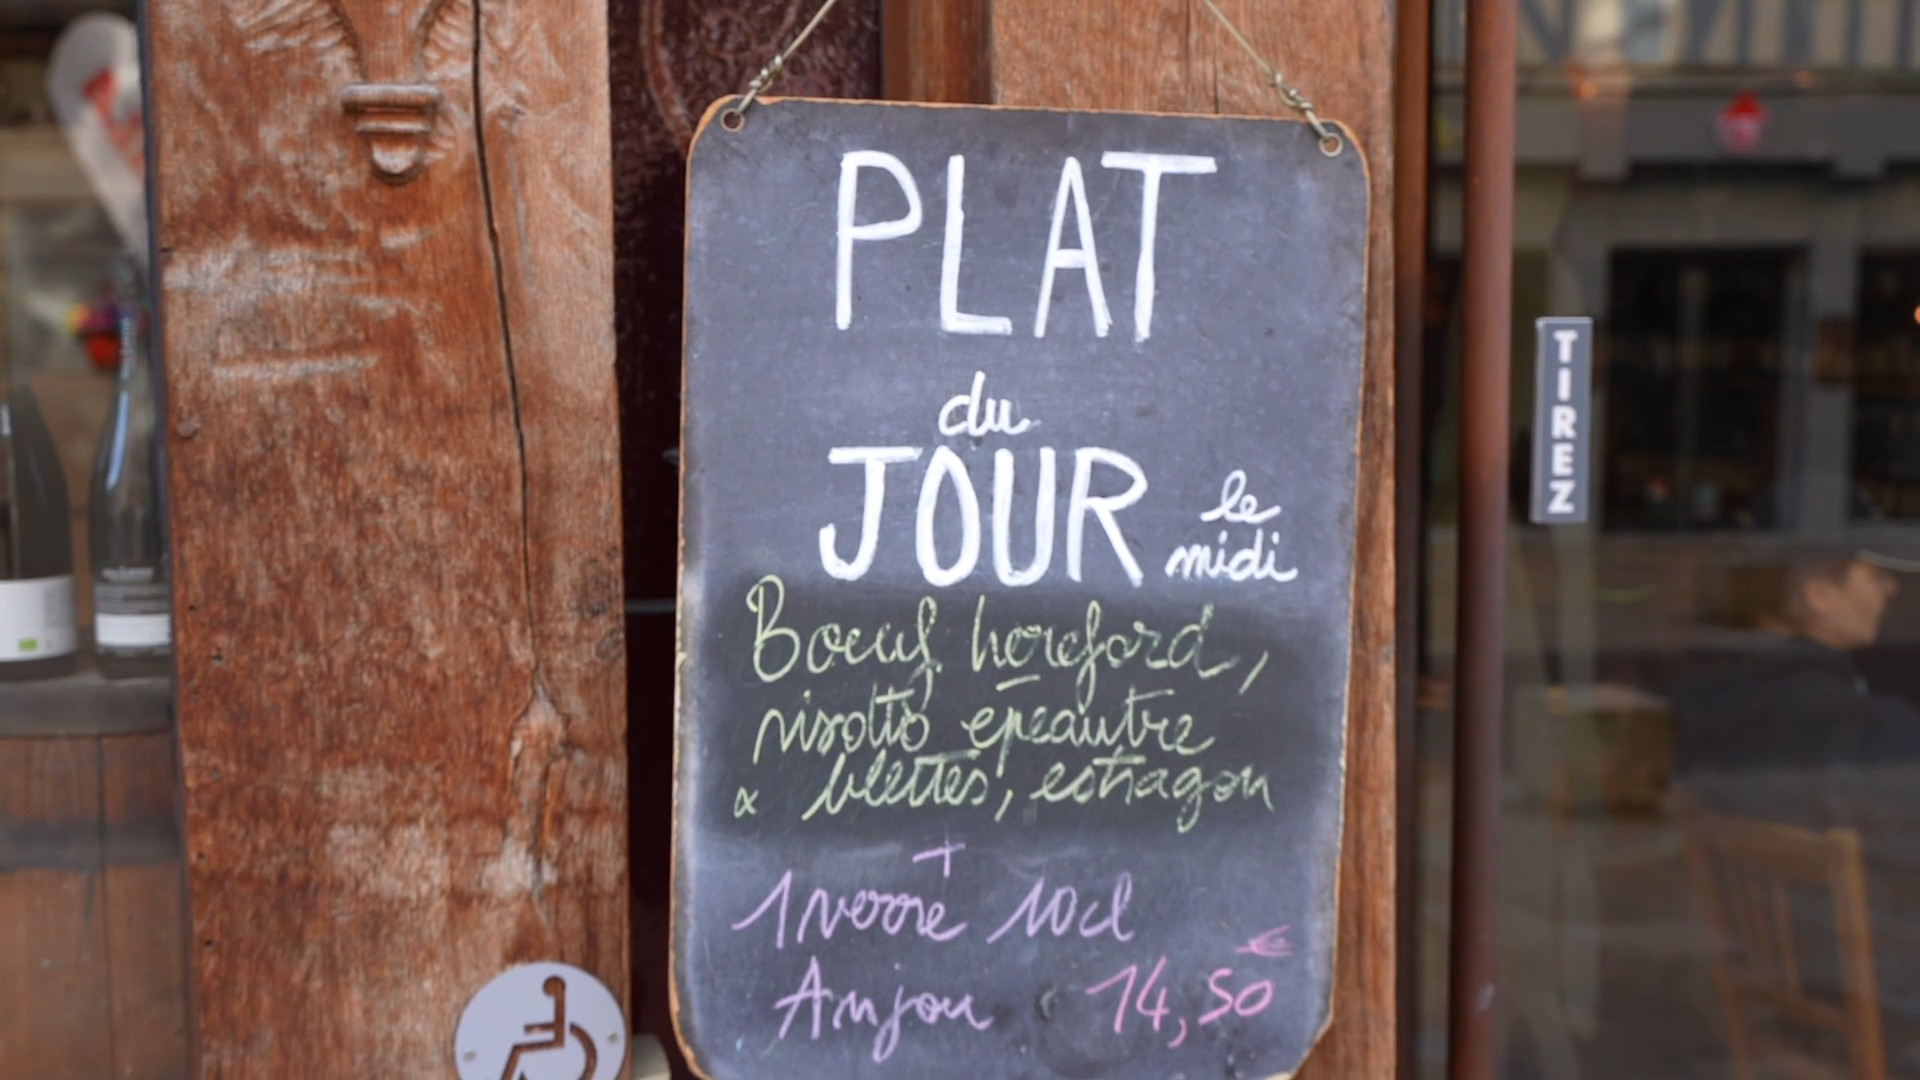 PLAT
du
JOUR le
midi
Boeuf hereford,
risotto epeautre
& blettes, estragon
+
1 verre 10cl
Anjou 14,50 €
TIREZ